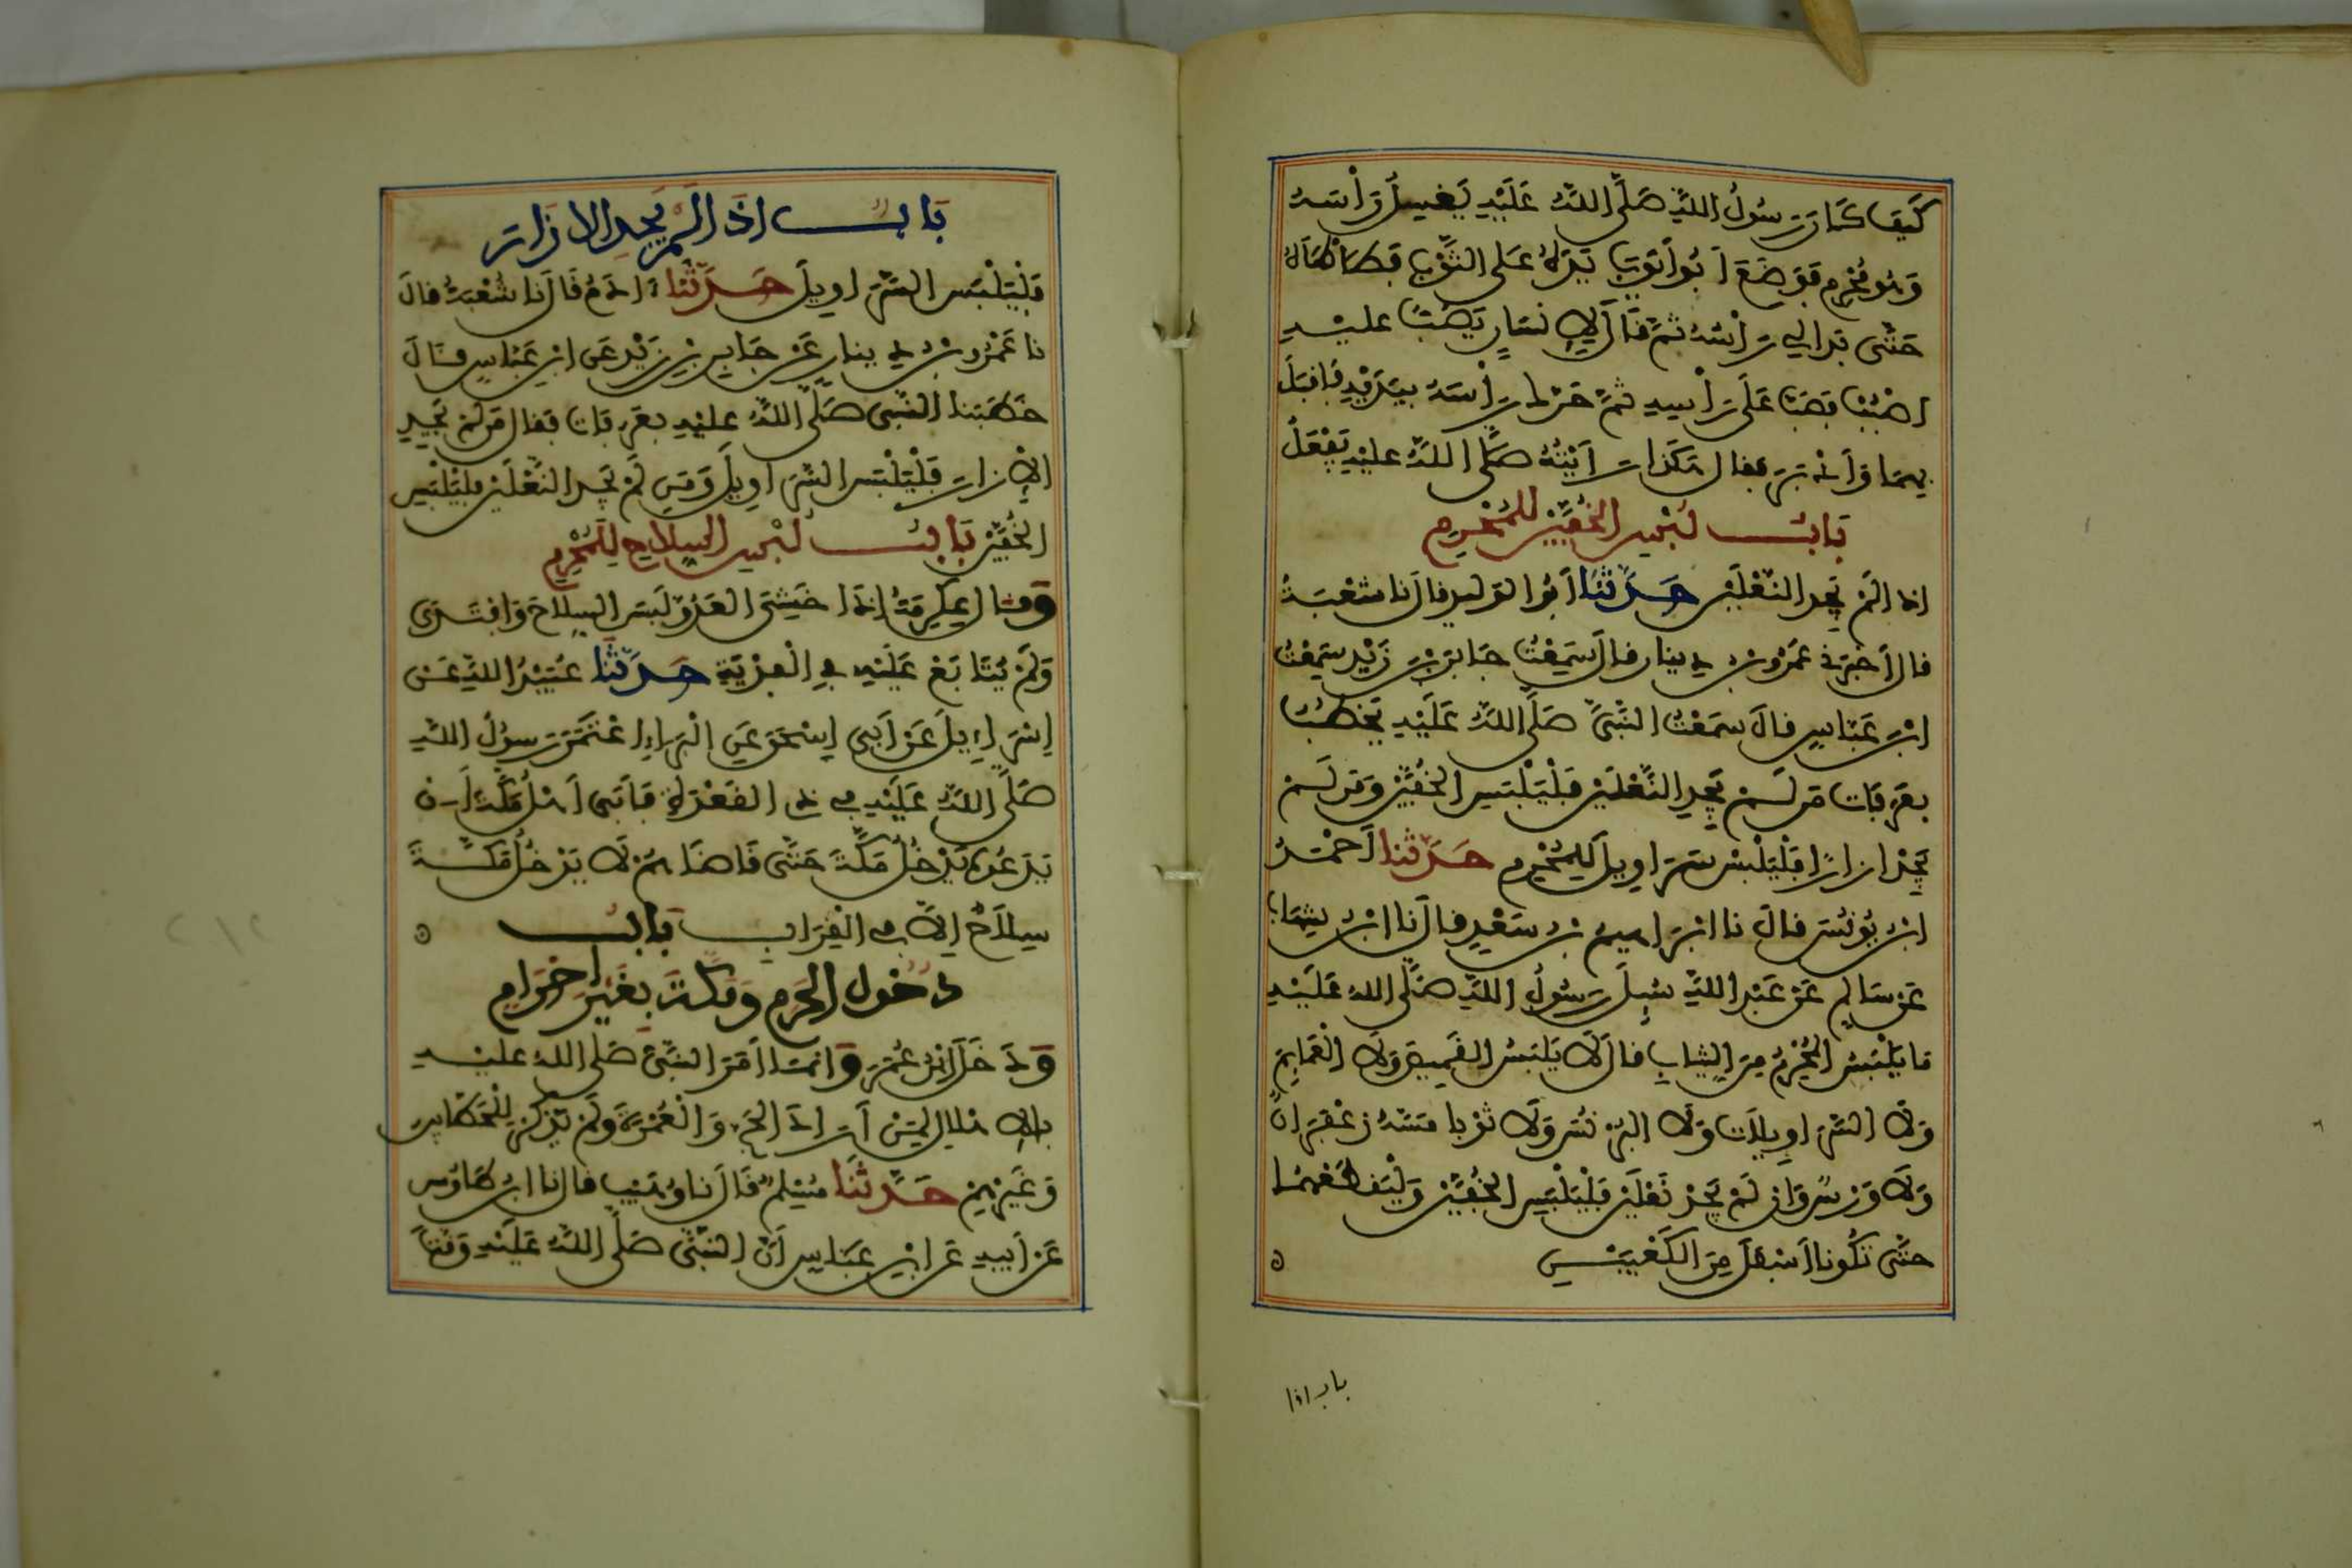 كَيْفَ كَانَ رَسُولُ اللَّهِ صَلَّى اللَّهُ عَلَيْهِ يَغْسِلُ رَأْسَهُ
وَهُوَ مُحْرِمٌ فَوَضَعَ أَبُو أَيُّوبَ يَدَهُ عَلَى الثَّوْبِ فَطَأْطَأَهُ
حَتَّى بَدَا لِي رَأْسُهُ ثُمَّ قَالَ لِإِنْسَانٍ يَصُبُّ عليه
اصْبُبْ فَصَبَّ عَلَى رَأْسِهِ ثُمَّ حَرَّكَ رَأْسَهُ بِيَدَيْهِ فَأَقْبَلَ
بِهِمَا وَأَدْبَرَ فقال هَكَذَا رَأَيْتُهُ صَلَّى اللَّهُ عليْهِ يَفْعَلُ
بَابُ لُبْسِ الْخُفَّيْنِ لِلْمُحْرِمِ
اذا لَمْ يَجِدِ النَّعْلَيْنِ حَدَّثَنَا أَبُو الْوَلِيدِ قال نا شُعْبَةُ
قال أَخْبَرَنِي عَمْرُو بْنُ دِينَارٍ قال سَمِعْتُ جَابِرَ بْنَ زَيْدٍ سَمِعْتُ
ابْنَ عَبَّاسٍ قال سَمِعْتُ النَّبِيَّ صَلَّى اللَّهُ عَلَيْهِ يَخْطُبُ
بِعَرَفَاتٍ مَن لَّمْ يَجِدِ النَّعْلَيْنِ فَلْيَلْبَسِ الْخُفَّيْنِ وَمَن لَّمْ
يَجِدْ ازارًا فَلْيَلْبَسْ سَرَاوِيلَ لِلْمُحْرِمِ حَدَّثَنَا أَحْمَدُ
ابْنُ يُونُسَ قال نا ابْرَاهِيمُ بْنُ سَعْدٍ قال نا ابْنُ شِهَابٍ
عَنْ سَالِمٍ عَنْ عَبْدِ اللَّهِ سُئِلَ رَسُولُ اللَّهِ صَلَّى الله عَلَيْهِ
مَا يَلْبَسُ الْمُحْرِمُ مِنَ الثِّيَابِ قال لَا يَلْبَسُ الْقَمِيصَ وَلَا الْعَمَايِمَ
وَلَا السَّرَاوِيلَاتِ وَلَا الْبُرْنُسَ وَلَا ثَوْبًا مَسَّهُ زَعْفَرَانٌ
وَلَا وَرْسٌ وَإِن لَّمْ يَجِدْ نَعْلَيْنِ فَلْيَلْبَسِ الْخُفَّيْنِ وَلْيَقْطَعْهُمَا
حَتَّى تَكُونَا أَسْفَلَ مِنَ الْكَعْبَيْنِ
باب اذا
بَابُ اذَا لَمْ يَجِدِ الازَارَ
فَلْيَلْبَسِ السَّرَاوِيلَ حَدَّثَنَا ادَمُ قَالَ نا شُعْبَةُ قال
نا عَمْرُو بْنُ دِينار عَنْ جَابِرِ بْنِ زَيْدٍ عَنِ ابْنِ عَبَّاسٍ قَالَ
خَطَبَنَا النَّبِيُّ صَلَّى اللَّهُ عليْهِ بِعَرَفَاتٍ فقال مَن لَّمْ يَجِدِ
الْإِزَارَ فَلْيَلْبَسِ السَّرَاوِيلَ وَمَن لَّمْ يَجِدِ النَّعْلَيْنِ فَلْيَلْبَسِ
الْخُفَّيْنِ بَابُ لُبْسِ السِّلَاحِ لِلْمُحْرِمِ
وقال عِكْرِمَةُ إِذَا خَشِيَ الْعَدُوَّ لَبِسَ السِّلَاحَ وَافْتَدَى
وَلَمْ يُتَابَعْ عَلَيْهِ فِي الْفِدْيَةِ حَدَّثَنَا عُبَيْدُ اللَّهِ عَنْ
إِسْرَاءِيلَ عَنْ أَبِي إِسْحَقَ عَنِ الْبَرَاءِ اعْتَمَرَ رَسُولُ اللَّهِ
صَلَّى اللَّهُ عَلَيْهِ فِي ذِي الْقَعْدَةِ فَأَبَى أَهْلُ مَكَّةَ أَنْ
يَدَعُوهُ يَدْخُلُ مَكَّةَ حَتَّى قَاضَاهُمْ لَا يَدْخُلُ مَكَّةَ
سِلَاحٌ إِلَّا فِي الْقِرَابِ بَابُ
دُخُولِ الْحَرَمِ وَمَكَّةَ بِغَيْرِ إِحْرَامٍ
وَدَخَلَ ابْنُ عُمَرَ وَإِنَّمَا أَمَرَ النَّبِيُّ صَلَّى الله عليه
بالاهْلَالِ لِمَنْ أَرَادَ الْحَجَّ وَالْعُمْرَةَ وَلَمْ يَذْكُرْ لِلْحَطَّابِينَ
وَغَيْرِهِمْ حَدَّثَنَا مُسْلِمٌ قَالَ نا وُهَيْبٌ قال نا ابْنُ طَاوُسٍ
عَنْ أَبِيهِ عَنِ ابْنِ عَبَّاسٍ أَنَّ النَّبِيَّ صَلَّى اللَّهُ عَلَيْهِ وَقَّتَ